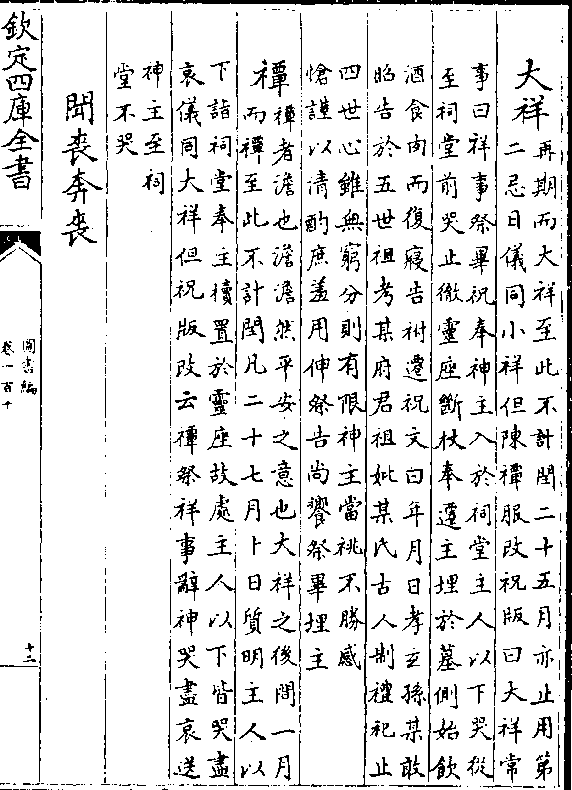 大祥
再期而大祥至此不計閏二十五月亦止用第
二忌日儀同小祥但陳禫服改祝版曰大祥常
事曰祥事祭畢祝奉神主入於祠堂主人以下哭從
至祠堂前哭止徹靈座斷杖奉遷主埋於墓側始飲
酒食肉而復寢告祔遷祝文曰年月日孝玄孫某敢
昭告於五世祖考某府君祖妣某氏古人制禮祀止
四世心雖無窮分則有限神主當祧不勝感
愴謹以清酌庶羞用伸祭告尚饗祭畢埋主
禫
禫者澹也澹澹然平安之意也大祥之後間一月
而禫至此不計閏凡二十七月卜日質明主人以
下詣祠堂奉主櫝置於靈座故處主人以下皆哭盡
哀儀同大祥但祝版改云禫祭祥事辭神哭盡哀送
神主至祠
堂不哭
聞喪奔喪
欽定四庫全書
圖書編
卷一百十
十二